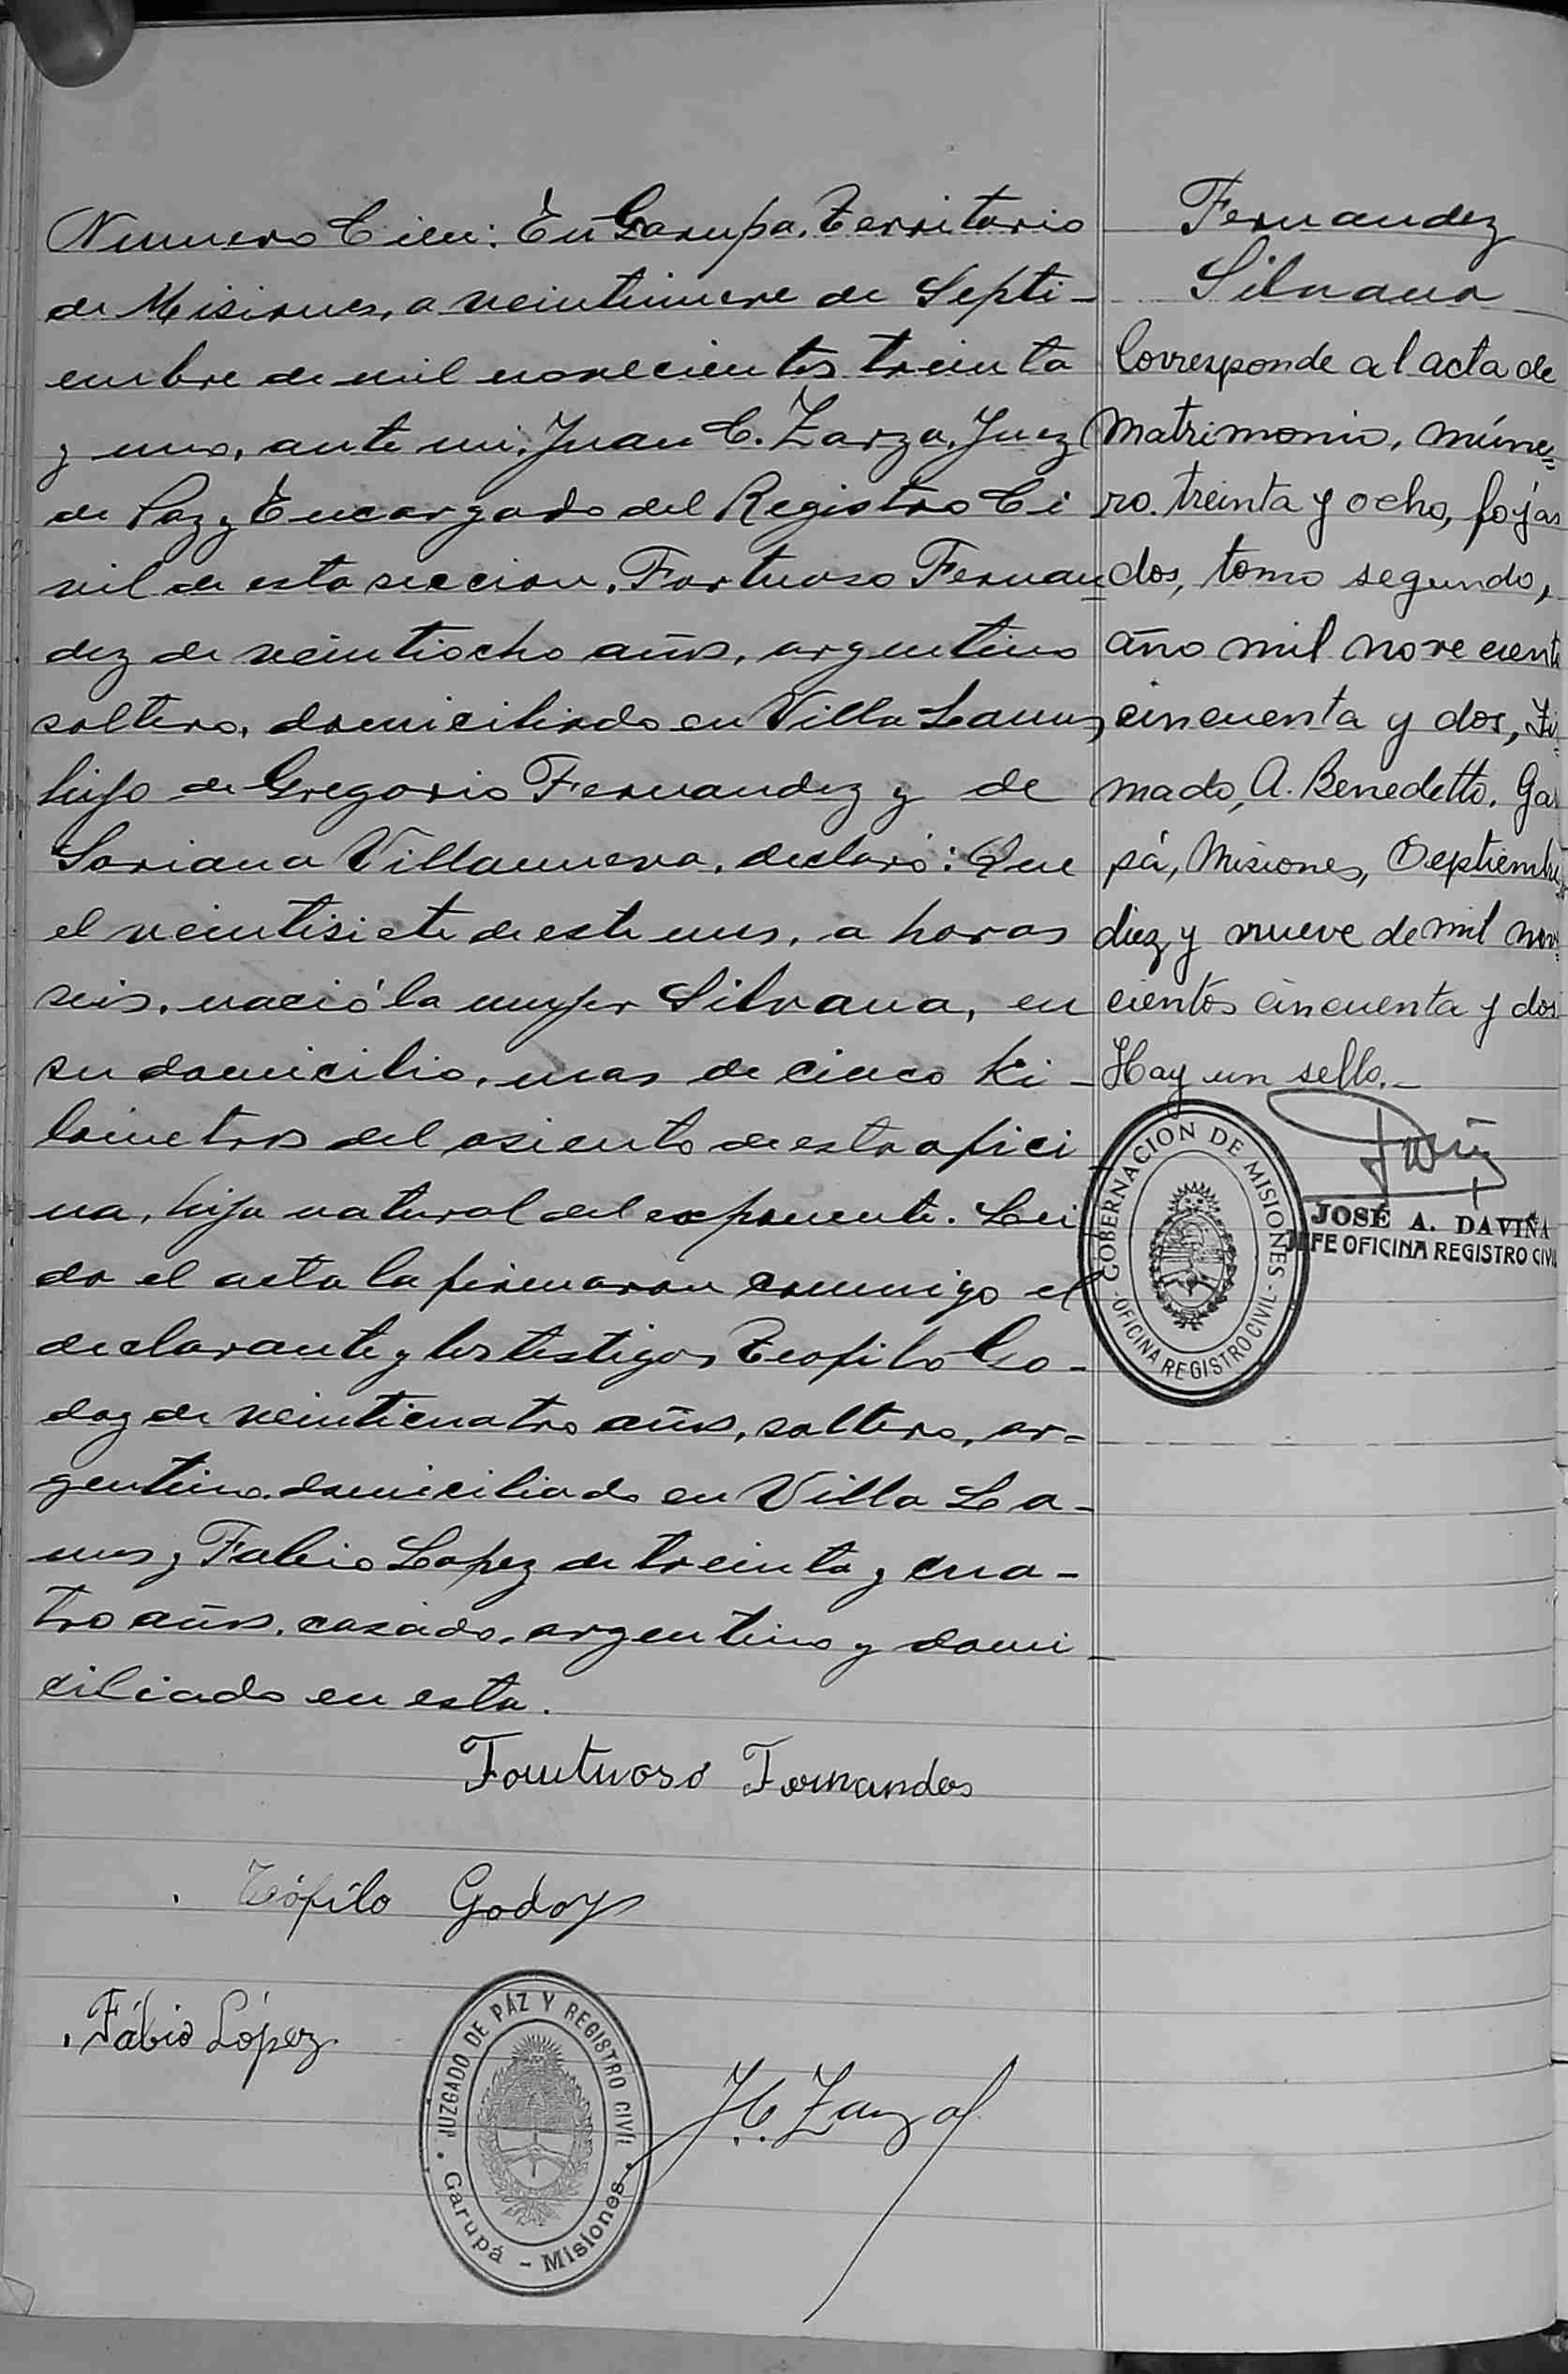 Numero Cien: En Garupa, Territorio
de Misiones, a veintinueve de Septi-
embre de mil novecientos treinta
y uno, ante mi, Juan C. Zarza, Juez
de Paz y Encargado del Registro Ci
vil de esta seccion, Fortuoso Fernan
dez de veintiocho años, argentino
soltero, domiciliado en Villa Lanus,
hijo de Gregorio Fernandez y de
Soriana Villanueva, declaró: Que
el veintisiete de este mes, a horas
seis, nació la mujer Silvana, en
su domicilio, mas de cinco Ki-
lometros del asiento de esta ofici
na, hija natural del exponente. Lei
da el acta la firmaron conmigo el
declarante y los testigos Teofilo Go-
doy de veinticuatro años, soltero, ar-
gentino domiciliado en Villa La-
nus y Fabio Lopez de treinta y cua-
tro años, casado, argentino y domi-
ciliado en esta.
Foutuoso Fernandes
Teófilo Godoy
Fábio López
JUZGADO DE PAZ Y REGISTRO CIVIL
Garupá - Misiones
J. C. Zarza
Fernandez
Silvana
Corresponde al acta de
matrimonio, núme=
ro treinta y ocho, fojas
dos, tomo segundo,
año mil nove cient
cincuenta y dos, Fi=
mado, A. Benedetto. Gar
pá, Misiones, Septiembre
diez y nueve de mil nov=
cientos cincuenta y dos
Hay un sello.-
GOBERNACION DE MISIONES
- OFICINA REGISTRO CIVIL -
JOSÉ A. DAVIÑA
JEFE OFICINA REGISTRO CIVIL